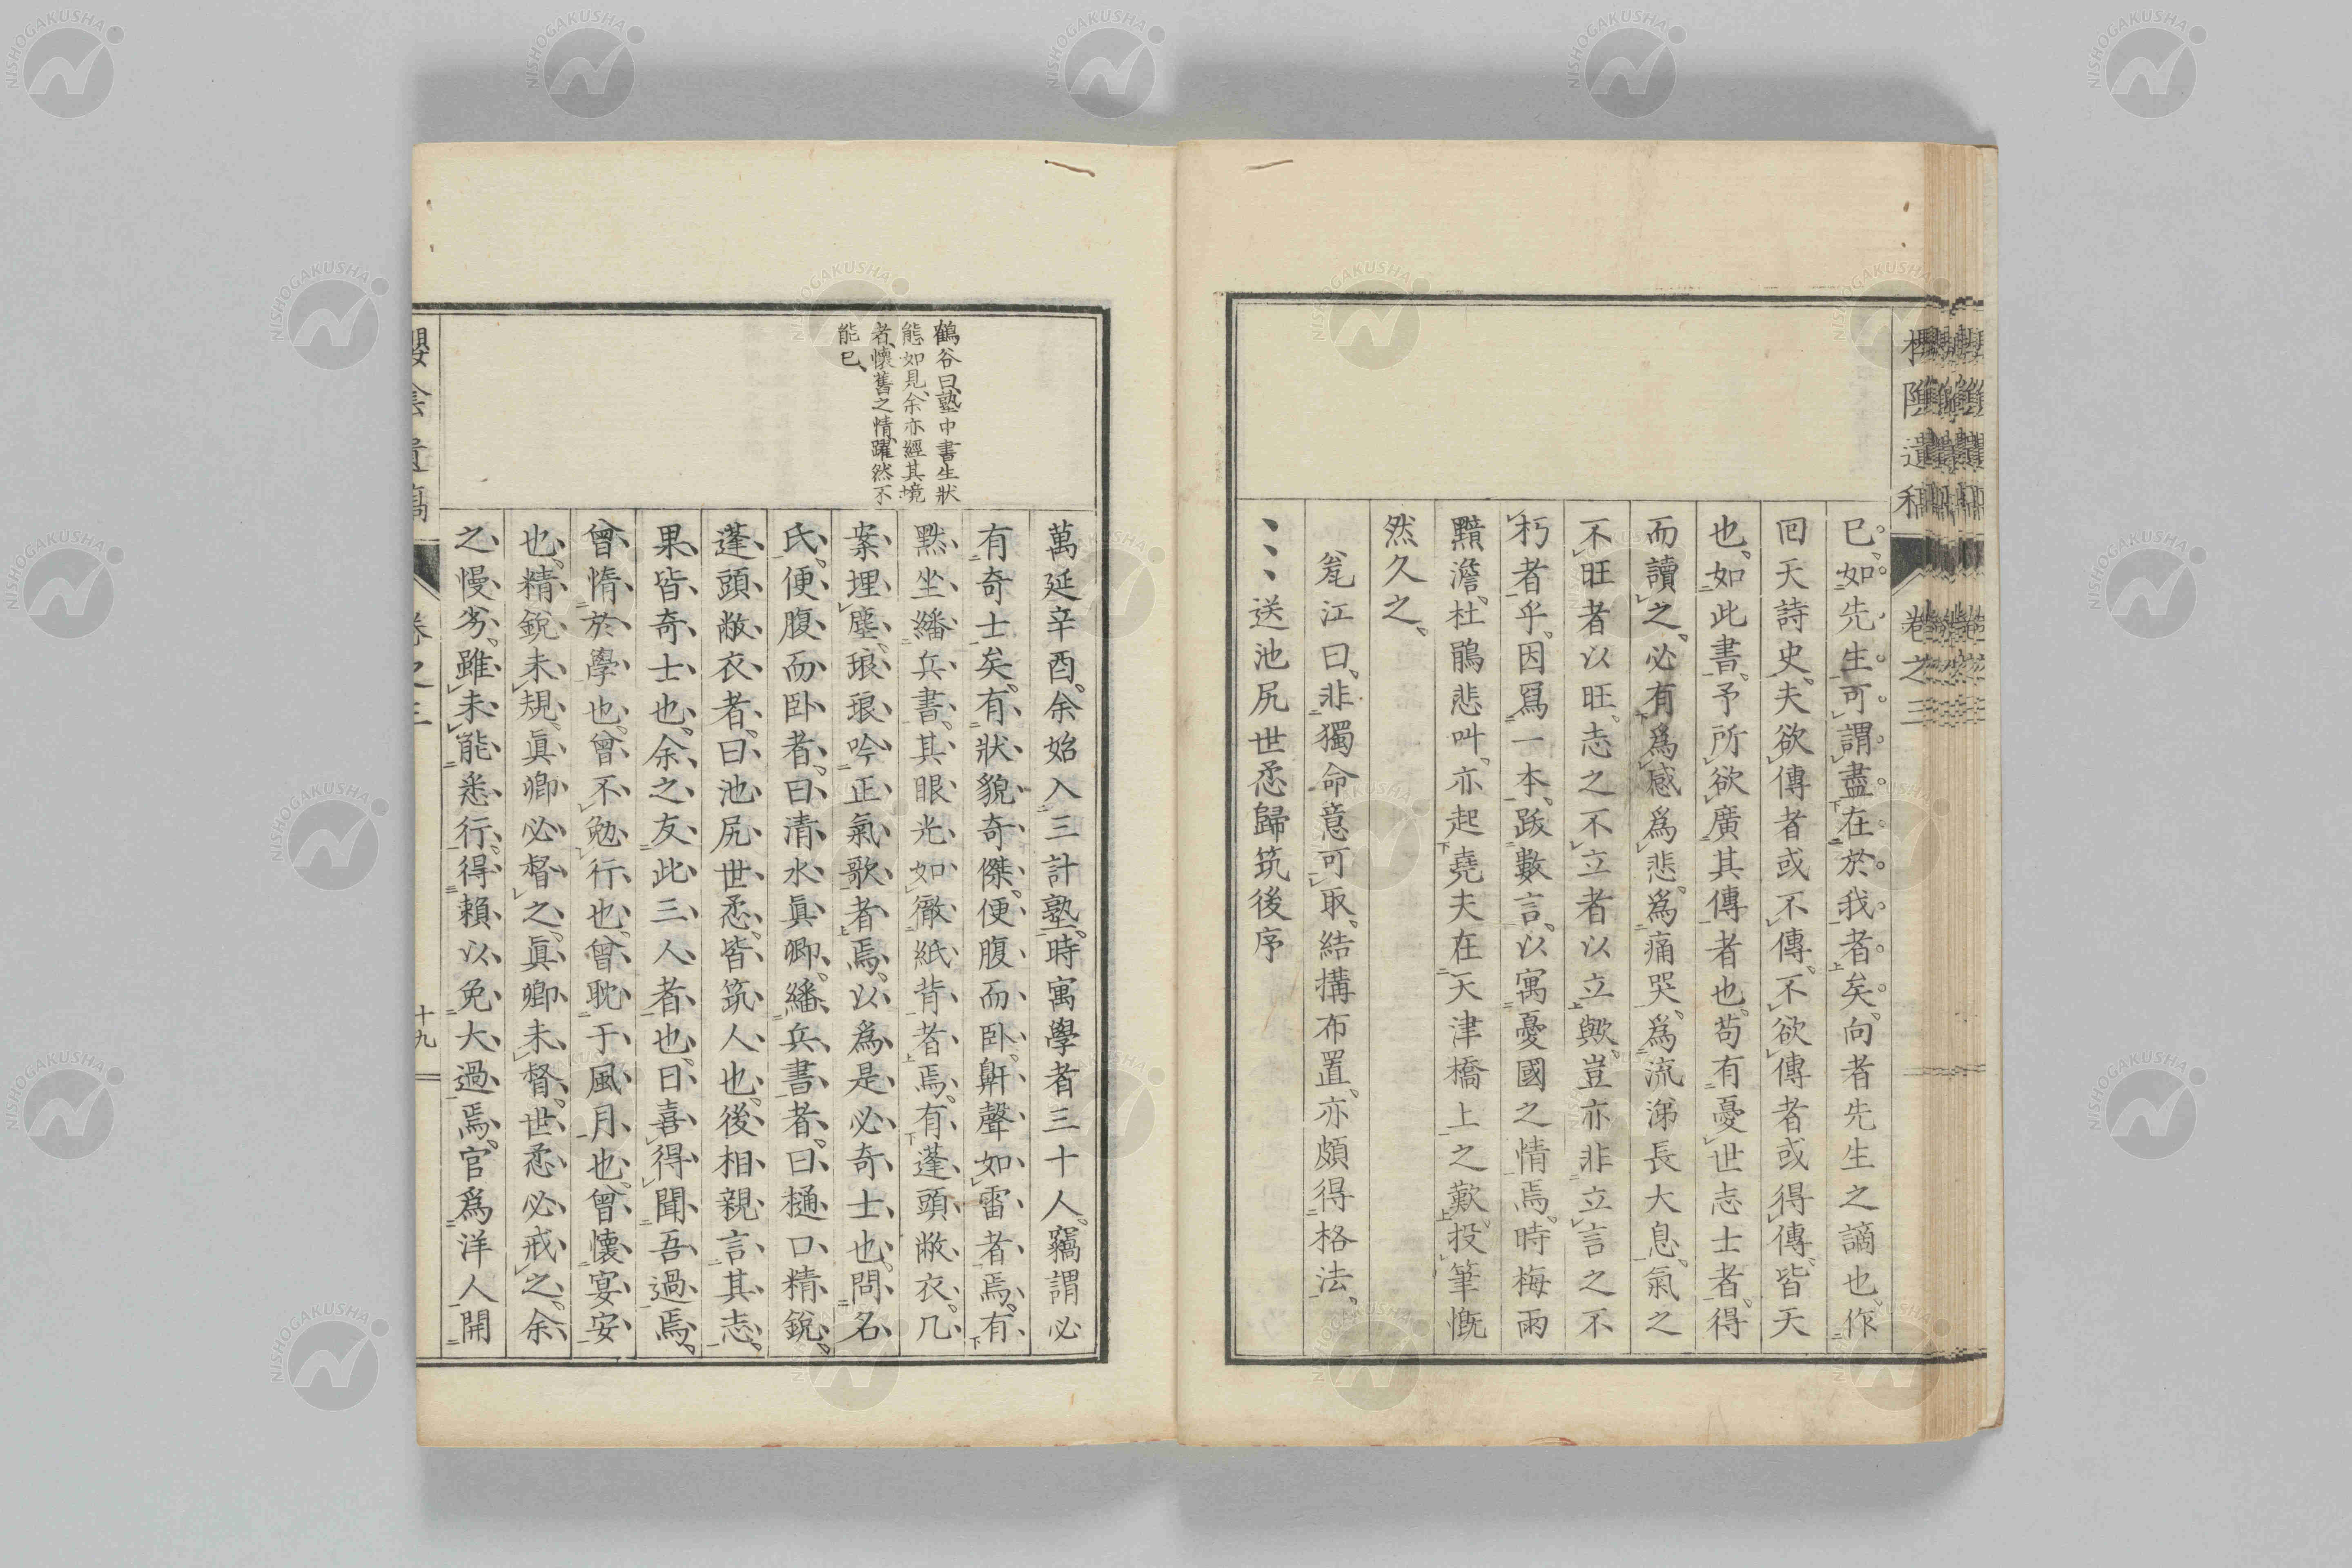 已。如先生可謂盡在於我者矣。向者先生之謫也作
回天詩史。夫欲傳者或不傳。不欲傳者或得傳。皆天
也。如此書。予所欲廣其傳者也。苟有憂世志士者。得
而讀之。必有爲感爲悲。爲痛哭。爲流涕長大息。氣之
不旺者以旺。志之不立者以立歟。豈亦非立言之不
朽者乎。因寫一本。跋數言。以寓憂國之情焉。時梅雨
黯澹。杜鵑悲叫。亦起堯夫在天津橋上之歎。投筆慨
然久之。
瓮江曰。非獨命意可取。結構布置。亦頗得格法。
、、、送池尻世恷歸筑後序
櫻陰遺稿
卷之三
鶴谷曰、塾中書生狀
態如見、余亦經其境
者、懷舊之情、躍然不
能已、
萬延辛酉。余始入三計塾。時寓學者三十人。竊謂必
有奇士矣。有狀貌奇傑。便腹而臥。鼾聲如雷者焉。有
默坐繙兵書。其眼光如徹紙背者焉。有蓬頭敝衣。几
案埋塵。琅琅吟正氣歌者焉。以爲是必奇士也。問名
氏。便腹而臥者。曰清水眞卿。繙兵書者。曰樋口精銳。
蓬頭敝衣者。曰池尻世恷。皆筑人也。後相親言其志。
果皆奇士也。余之友此三人者也。日喜得聞吾過焉。
曾惰於學也。曾不勉行也。曾耽于風月也。曾懷宴安
也。精銳未規。眞卿必督之。眞卿未督。世恷必戒之。余
之慢劣。雖未能悉行。得賴以免大過焉。官爲洋人開
十九
NISHOGAKUSHA